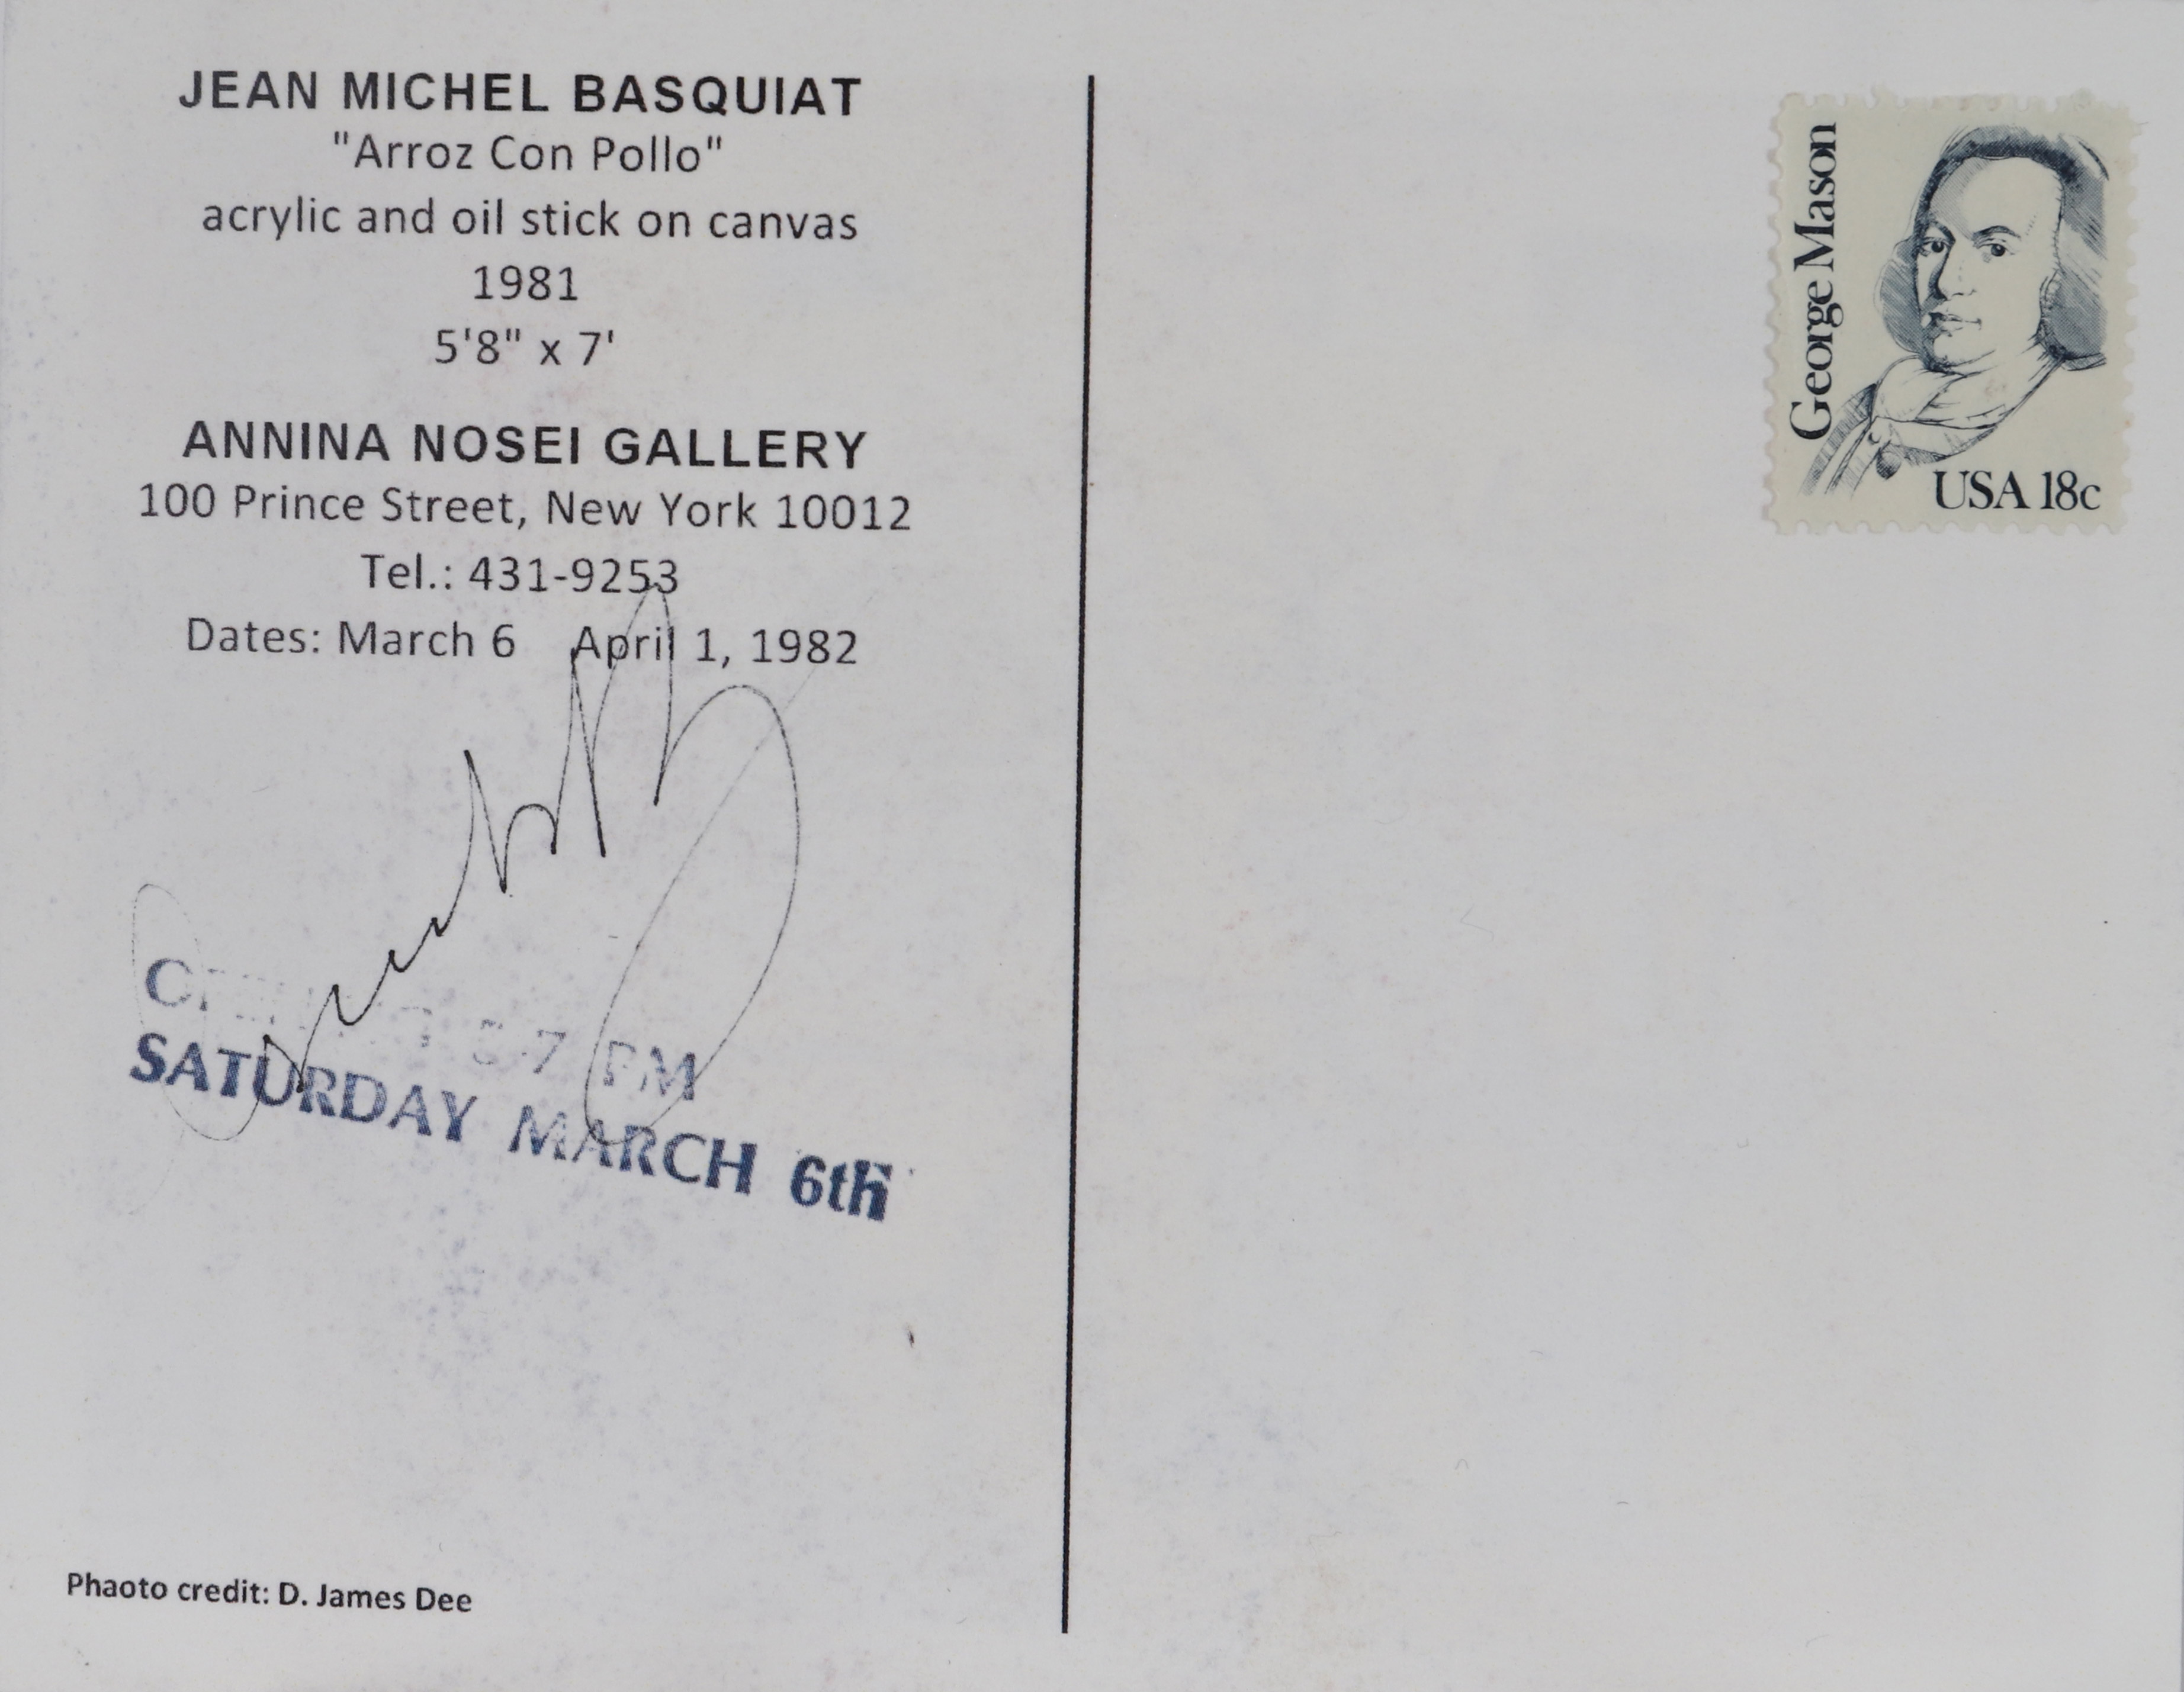 JEAN MICHEL BASQUIAT
"Arroz Con Pollo"
acrylic and oil stick on canvas
1981
5'8" x 7'
ANNINA NOSEI GALLERY
100 Prince Street, New York 10012
Tel.: 431-9253
Dates: March 6 April 1, 1982
7 PM
SATURDAY MARCH 6th
Phaoto credit: D. James Dee
George Mason
USA 18c